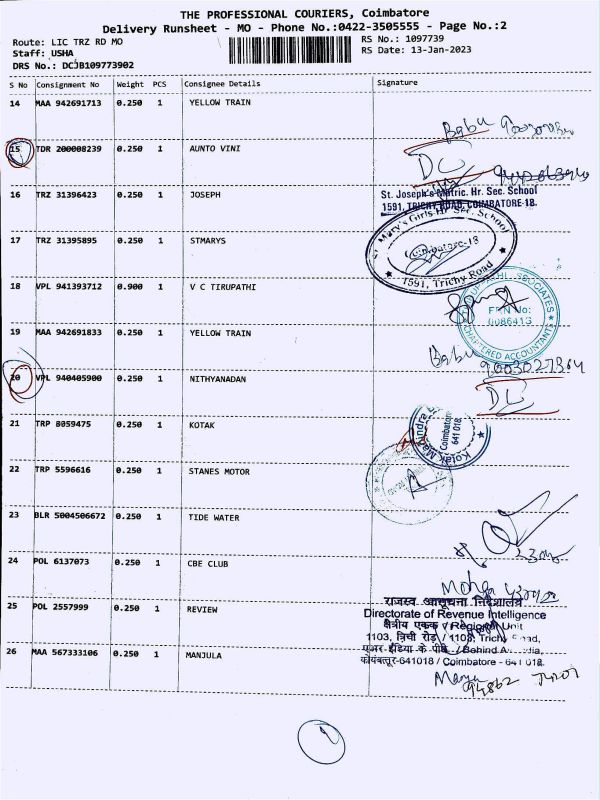 THE PROFESSIONAL COURIERS, Coimbatore
Delivery Runsheet - MO - Phone No.:0422-3505555 - Page No.:2
Route: LIC TRZ RD MO
RS No.: 1097739
Staff: USHA
RS Date: 13-Jan-2023
DRS No.: DCJB109773902
S No Consignment No Weight PCS Consignee Details Signature
14 MAA 942691713 0.250 1 YELLOW TRAIN
Babu
15 TDR 200008239 0.250 1 AUNTO VINI
DL
16 TRZ 31396423 0.250 1 JOSEPH
St. Joseph's Matric. Hr. Sec. School
1591, TRICHY ROAD, COIMBATORE-18.
17 TRZ 31395895 0.250 1 STMARYS
St. Mary's Girls Hr Sec. School
Coimbatore-18
1591, Trichy Road
18 VPL 941393712 0.900 1 V C TIRUPATHI
ASSOCIATES
FRN No:
0086413
CHARTERED ACCOUNTANTS
19 MAA 942691833 0.250 1 YELLOW TRAIN
Babu
9003027364
20 VPL 940405900 0.250 1 NITHYANADAN
DL
21 TRP 8059475 0.250 1 KOTAK
Kotak Mahindra
Coimbatore
641 018
22 TRP 5596616 0.250 1 STANES MOTOR
23 BLR 5004506672 0.250 1 TIDE WATER
24 POL 6137073 0.250 1 CBE CLUB
25 POL 2557999 0.250 1 REVIEW
राजस्व आसूचना निदेशालय
Directorate of Revenue Intelligence
क्षेत्रीय एकक / Regional Unit
1103, त्रिची रोड़ / 1103, Trichy Road,
एअर इंडिया के पीछे / Behind
कोयंबत्तूर-641018 / Coimbatore - 641 018.
26 MAA 567333106 0.250 1 MANJULA